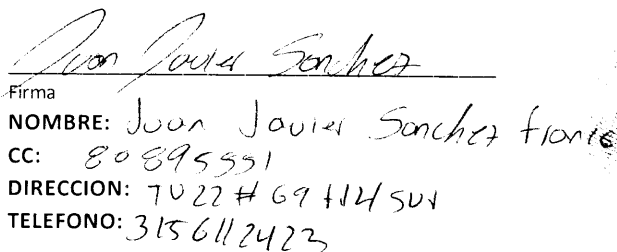 Juan Javier Sanchez
Firma
NOMBRE: Juan Javier Sanchez
CC: 80895551
DIRECCION: # 69 sur
TELEFONO: 3156112423